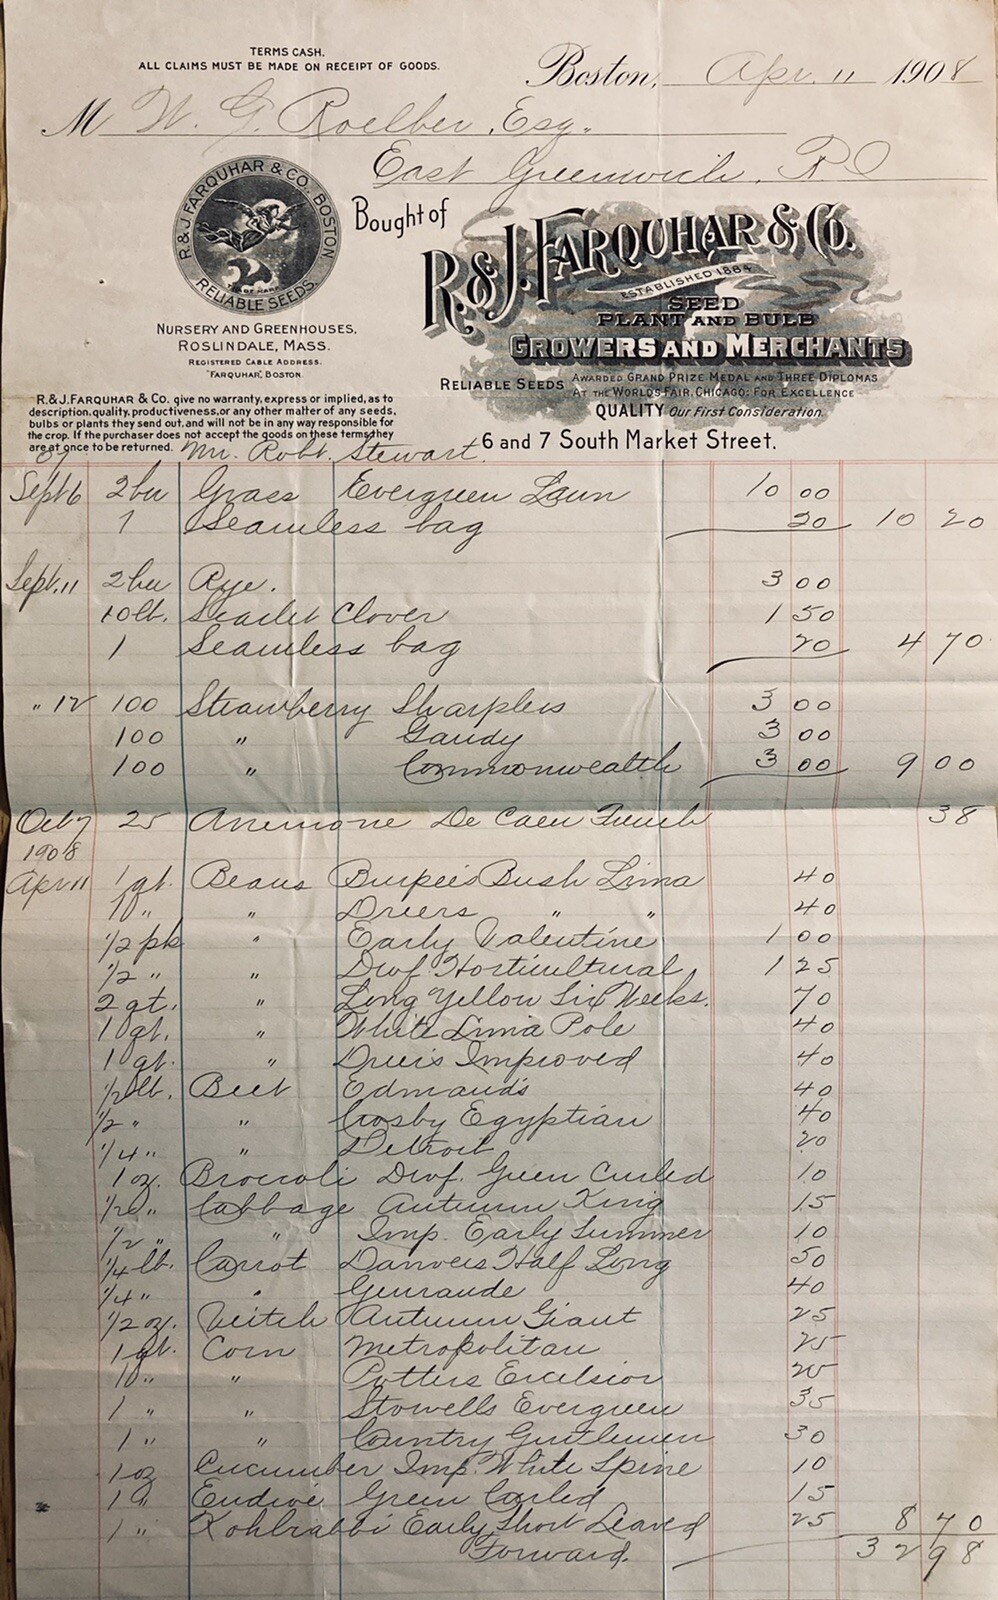 TERMS CASH.
ALL CLAIMS MUST BE MADE ON RECEIPT OF GOODS.
Boston, Apr. 11 1908
M W. G. Roelker, Esq.
East Greenwich, R I
R. & J. FARQUHAR & CO. BOSTON
TRADE MARK
RELIABLE SEEDS.
NURSERY AND GREENHOUSES,
ROSLINDALE, MASS.
REGISTERED CABLE ADDRESS.
"FARQUHAR", BOSTON.
Bought of
R. & J. FARQUHAR & CO.
ESTABLISHED 1884
SEED
PLANT AND BULB
GROWERS AND MERCHANTS
RELIABLE SEEDS AWARDED GRAND PRIZE MEDAL AND THREE DIPLOMAS
AT THE WORLD'S FAIR, CHICAGO: FOR EXCELLENCE
QUALITY Our First Consideration.
6 and 7 South Market Street.
R. & J. FARQUHAR & Co. give no warranty, express or implied, as to
description, quality, productiveness, or any other matter of any seeds,
bulbs or plants they send out, and will not be in any way responsible for
the crop. If the purchaser does not accept the goods on these terms, they
are at once to be returned.
07 Mr. Robt. Stewart.
Sept 6 2 bu Grass Evergreen Lawn 10 00
1 Seamless bag 20 10 20
Sept. 11 2 bu Rye. 3 00
10 lb. Scarlet Clover 1 50
1 Seamless bag 20 4 70
" 12 100 Strawberry Sharpless 3 00
100 " Gandy 3 00
100 " Commonwealth 3 00 9 00
Oct 7 25 Anemone De Caen French 38
1908
Apr 11 1 qt. Beans Burpee's Bush Lima 40
1 " " Dreers " " 40
1/2 pk " Early Valentine 1 00
1/2 " " Dwf. Horticultural 1 25
2 qt. " Long Yellow Six Weeks. 70
1 qt. " White Lima Pole 40
1 qt. " Dreers Improved 40
1/2 lb. Beet Edmands 40
1/2 " " Crosby Egyptian 40
1/4 " " Detroit 20
1 oz. Broccoli Dwf. Green Curled 10
1/2 " Cabbage Autumn King 15
1/2 " " Imp. Early Summer 10
1/4 lb. Carrot Danvers Half Long 50
1/4 " " Guerande 40
1/2 oz. Veitch Autumn Giant 25
1 qt. Corn Metropolitan 25
1 " " Potters Excelsior 25
1 " " Stowells Evergreen 35
1 " " Country Gentlemen 30
1 oz Cucumber Imp. White Spine 10
1 " Endive Green Curled 15
1 " Kohlrabbi Early Short Leaved 25 8 70
Forward. 32 98